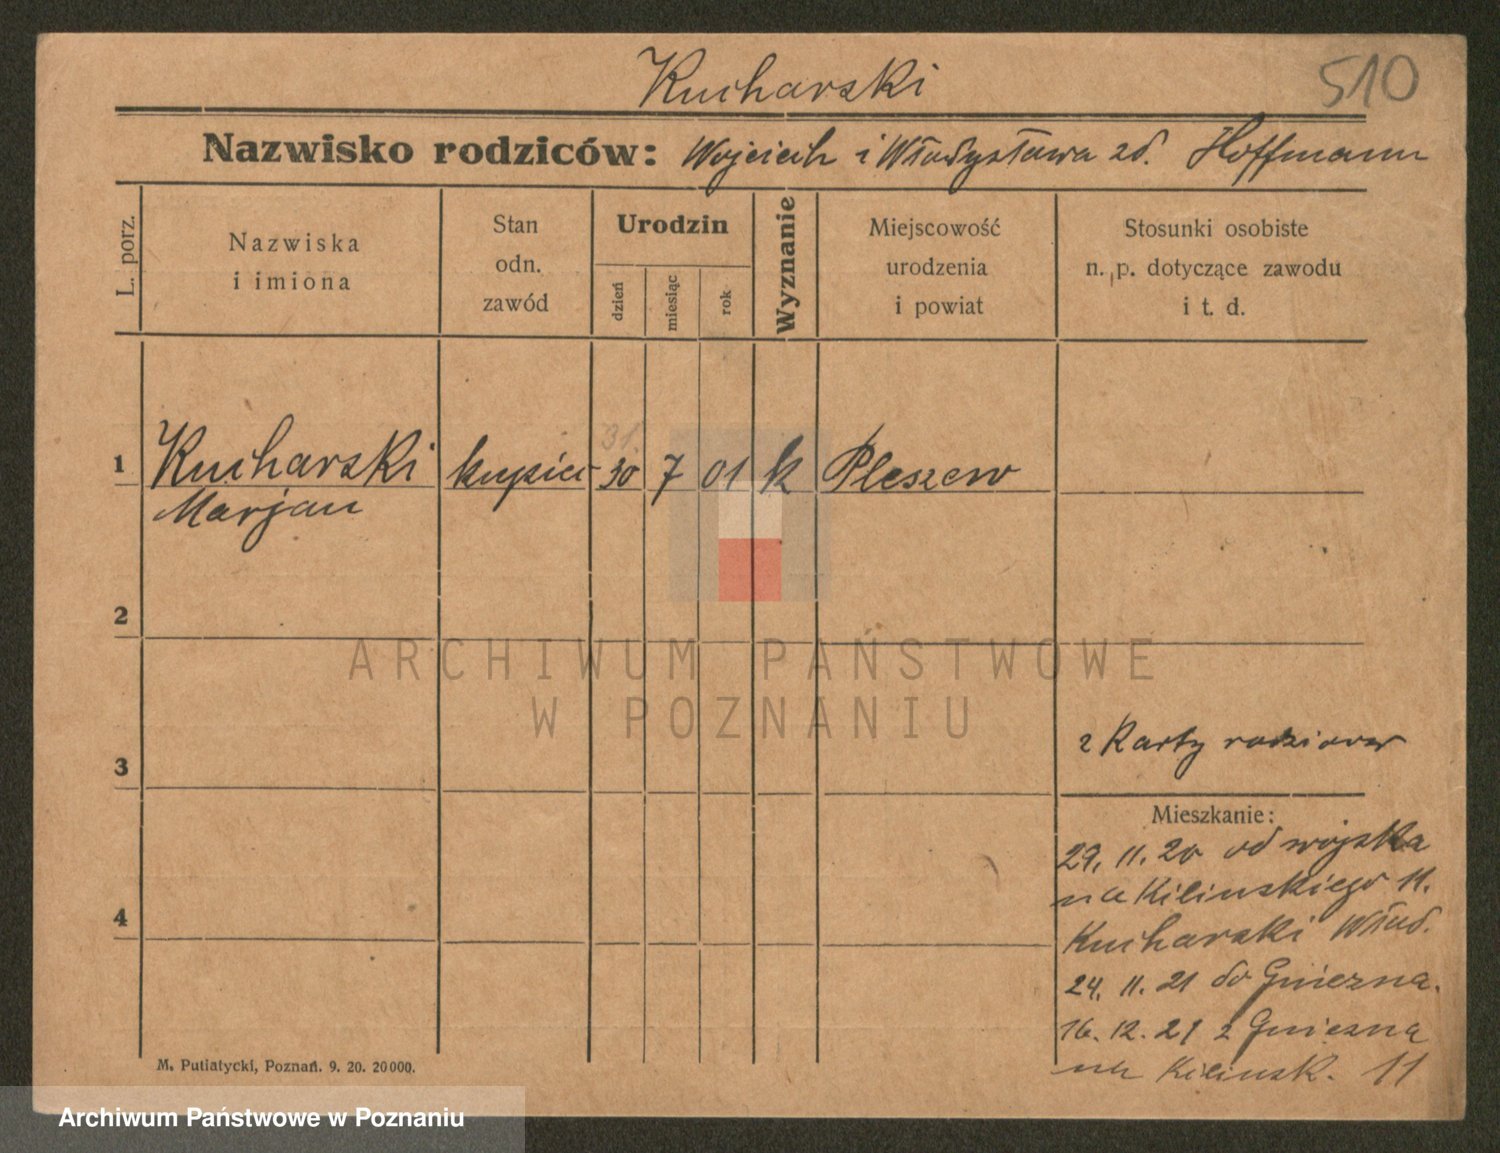 Kucharski
510
Nazwisko rodziców: Wojciech i Władysława zd. Hoffmann
L. porz.
Nazwiska
i imiona
Stan
odn.
zawód
Urodzin
dzień
miesiąc
rok
Wyznanie
Miejscowość
urodzenia
i powiat
Stosunki osobiste
n. p. dotyczące zawodu
i t. d.
31.
1 Kucharski kupiec 30 7 01 k Pleszew
Marjan
2
ARCHIWUM PAŃSTWOWE
W POZNANIU
z Karty rodziców
3
Mieszkanie:
29. 11. 20 od wojska
na Kilinskiego 11.
4
Kucharski Wład.
24. 11. 21 do Gniezna.
16. 12. 21 z Gniezna
na Kilinsk. 11
M. Putiatycki, Poznań. 9. 20. 20000.
Archiwum Państwowe w Poznaniu